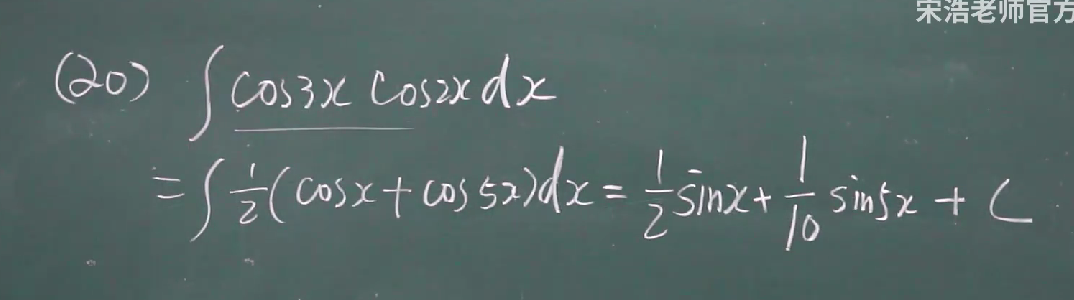 宋浩老师官方
(20) ∫cos3x cos2x dx
=∫½(cosx+cos5x)dx = ½sinx+1/10 sin5x + C